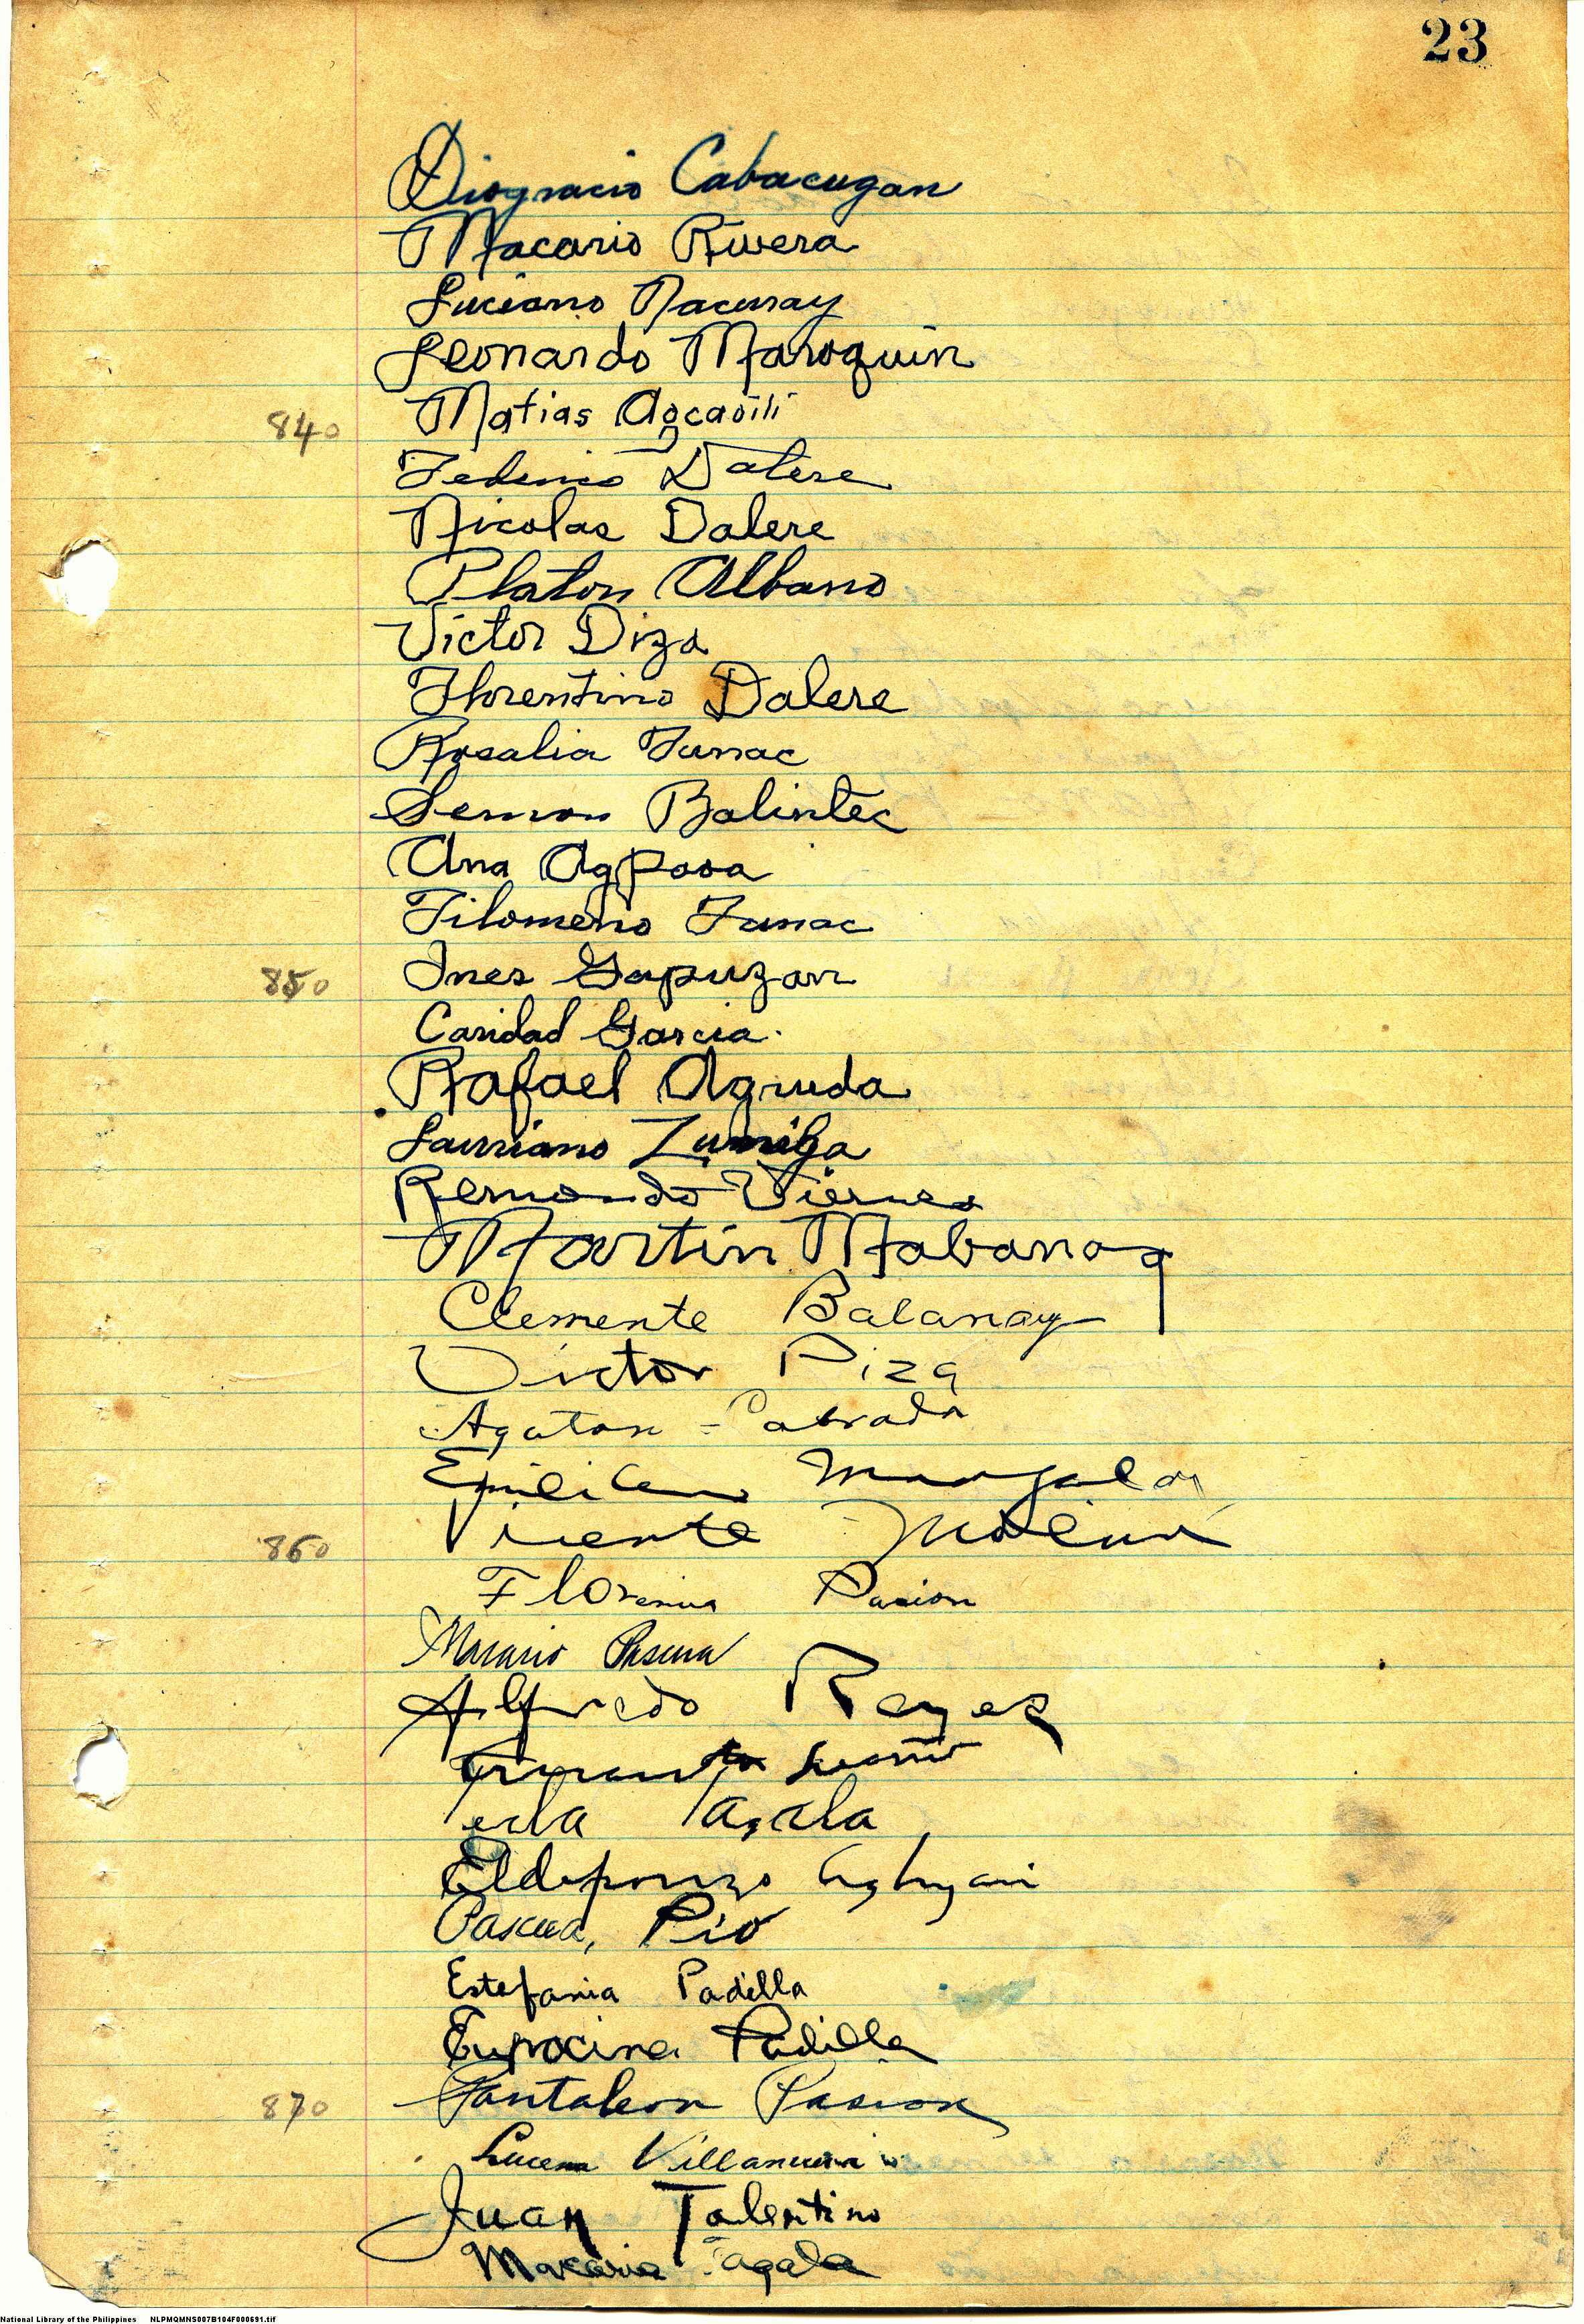 23
Diogracio Cabacugan
Macario Rivera
Luciano Nacuray
Leonardo Maroquin
840 Matias Agcaoili
Federico Dalere
Nicolas Dalere
Platon Albano
Victor Diza
Florentino Dalere
Rosalia Funac
Semon Balintec
Ana Agpaoa
Filomeno Funac
850 Ines Gapuzan
Caridad Garcia.
Rafael Agruda
Lauriano Zuniga
Remondo Viernes
Martin Mabanag
Clemente Balanay
Victor Piza
Agaton Cabrada
Emilian
860 Vicente Molina
Florenia Pasion
Macario Pascua
Alfredo Reyes
Tecla Tagala
Eldeponzo
Pascua, Pio
Estefania Padilla
Euprocina Padilla
870 Pantaleon Pasion
Lucena Villanueva
Juan Tolentino
Macaria Tagala
National Library of the Philippines NLPMQMNS007B104F000691.tif